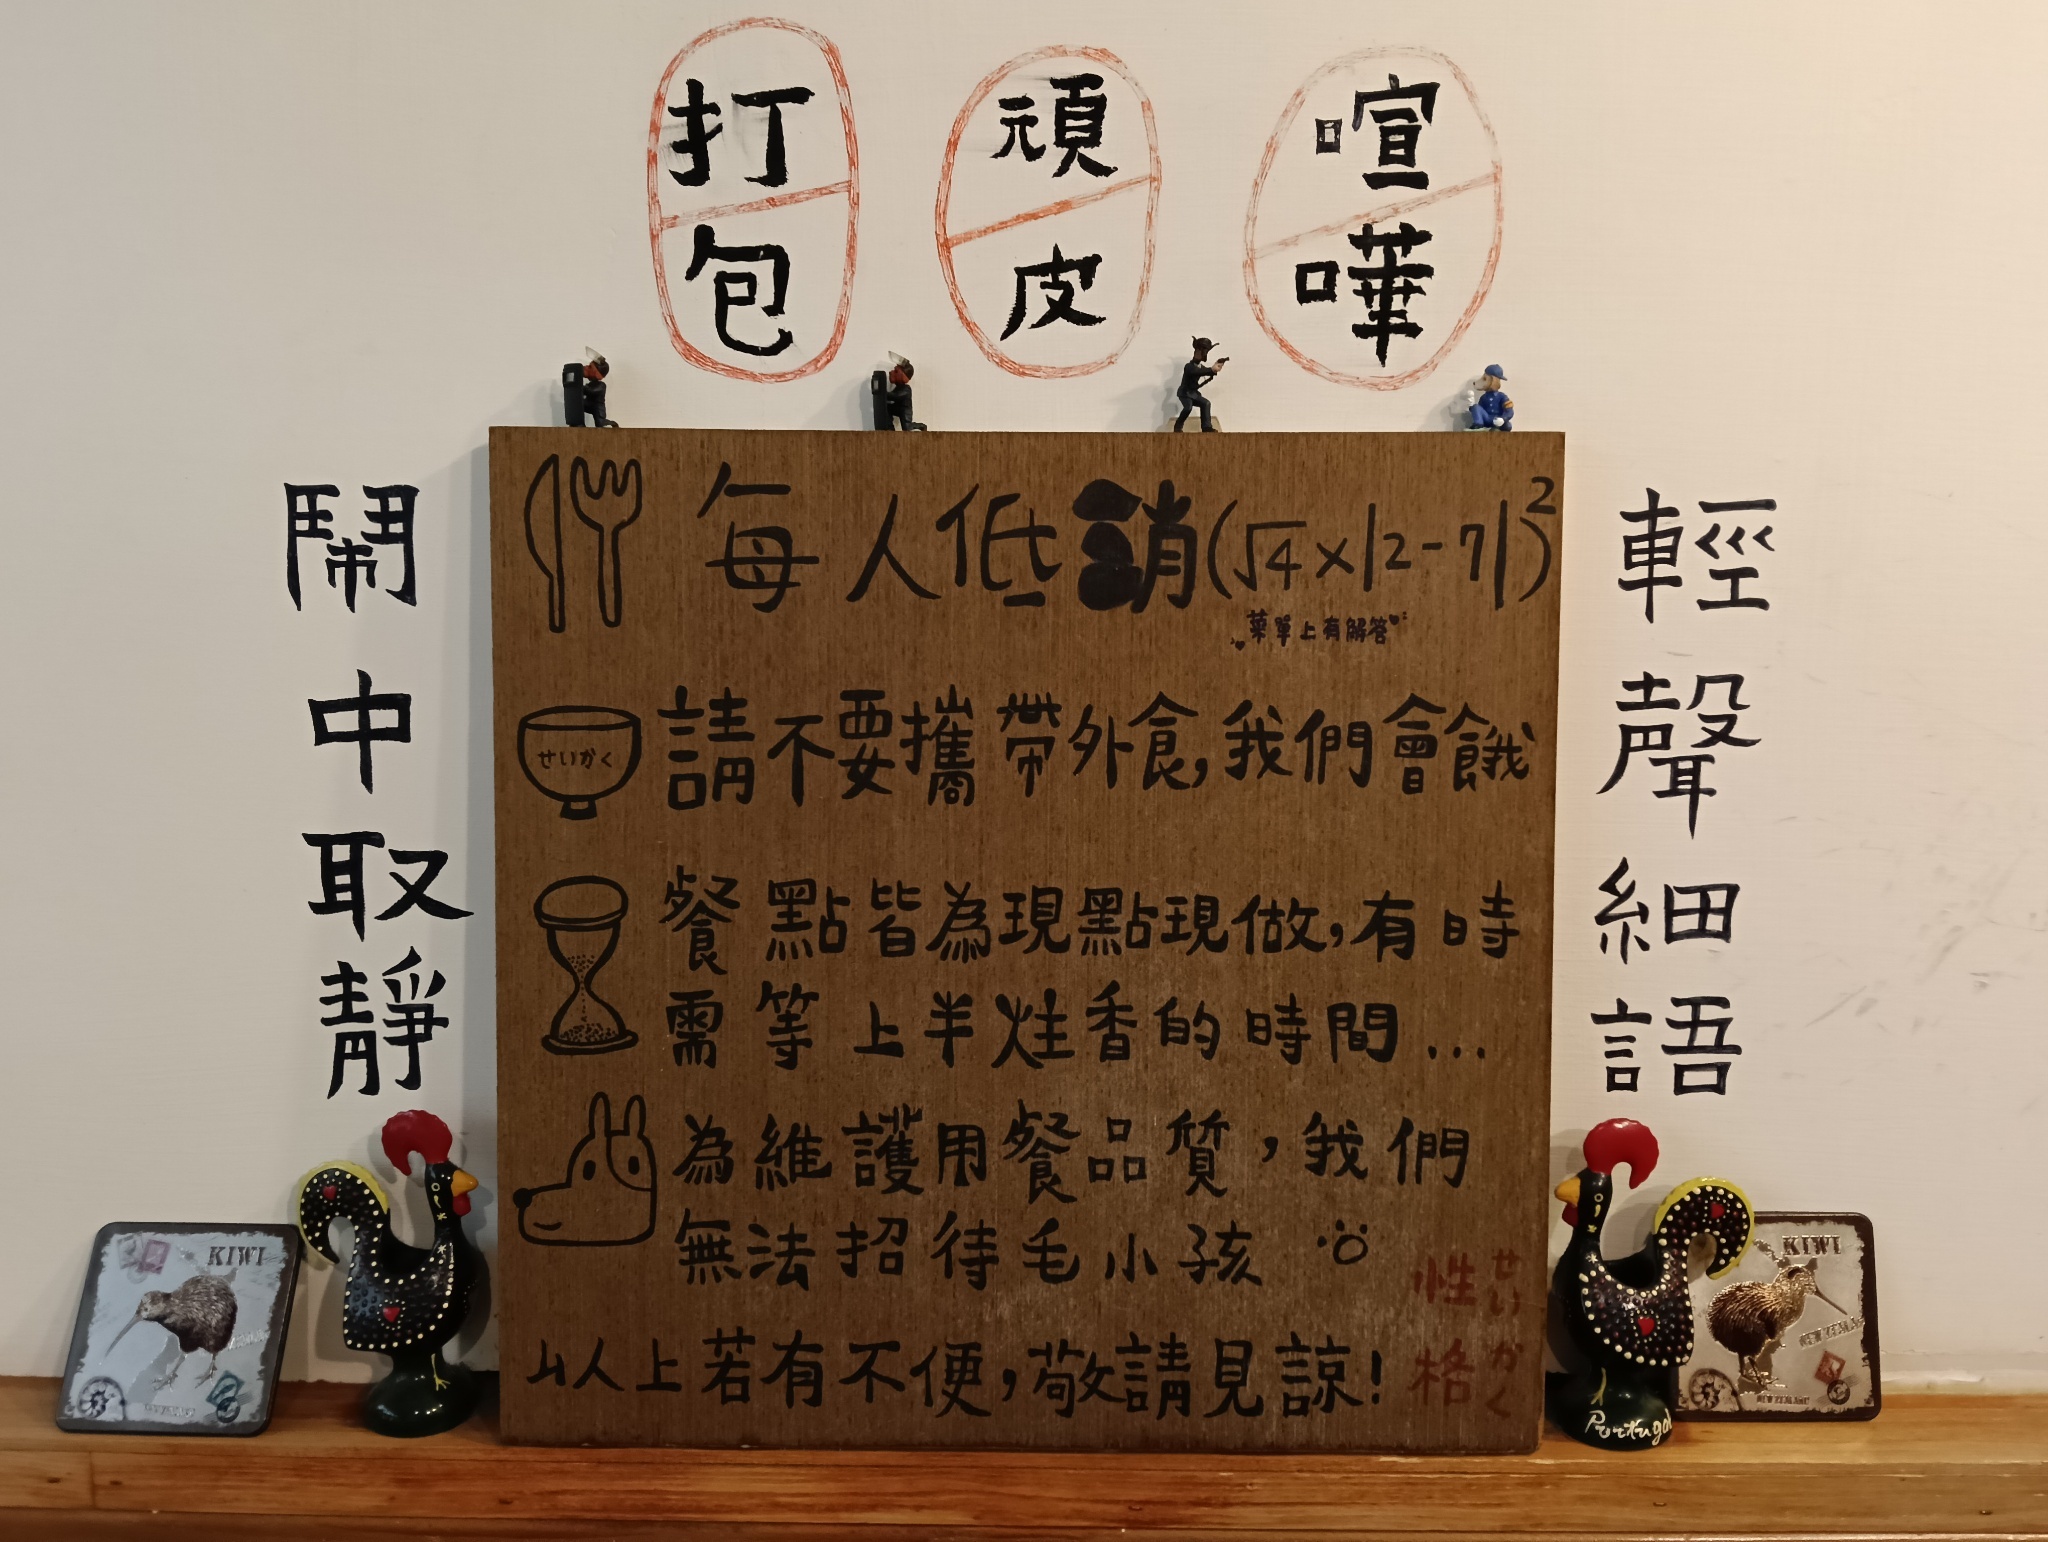 打包
頑皮
喧嘩
鬧中取靜
輕聲細語
每人低消(√4×|2-7|)²
菜單上有解答
せいかく
請不要攜帶外食,我們會餓
餐點皆為現點現做,有時
需等上半炷香的時間...
為維護用餐品質,我們
無法招待毛小孩
以上若有不便,敬請見諒!
性格
せいかく
KIWI
NEW ZEALAND
KIWI
NEW ZEALAND
NEW ZEALAND
Portugal